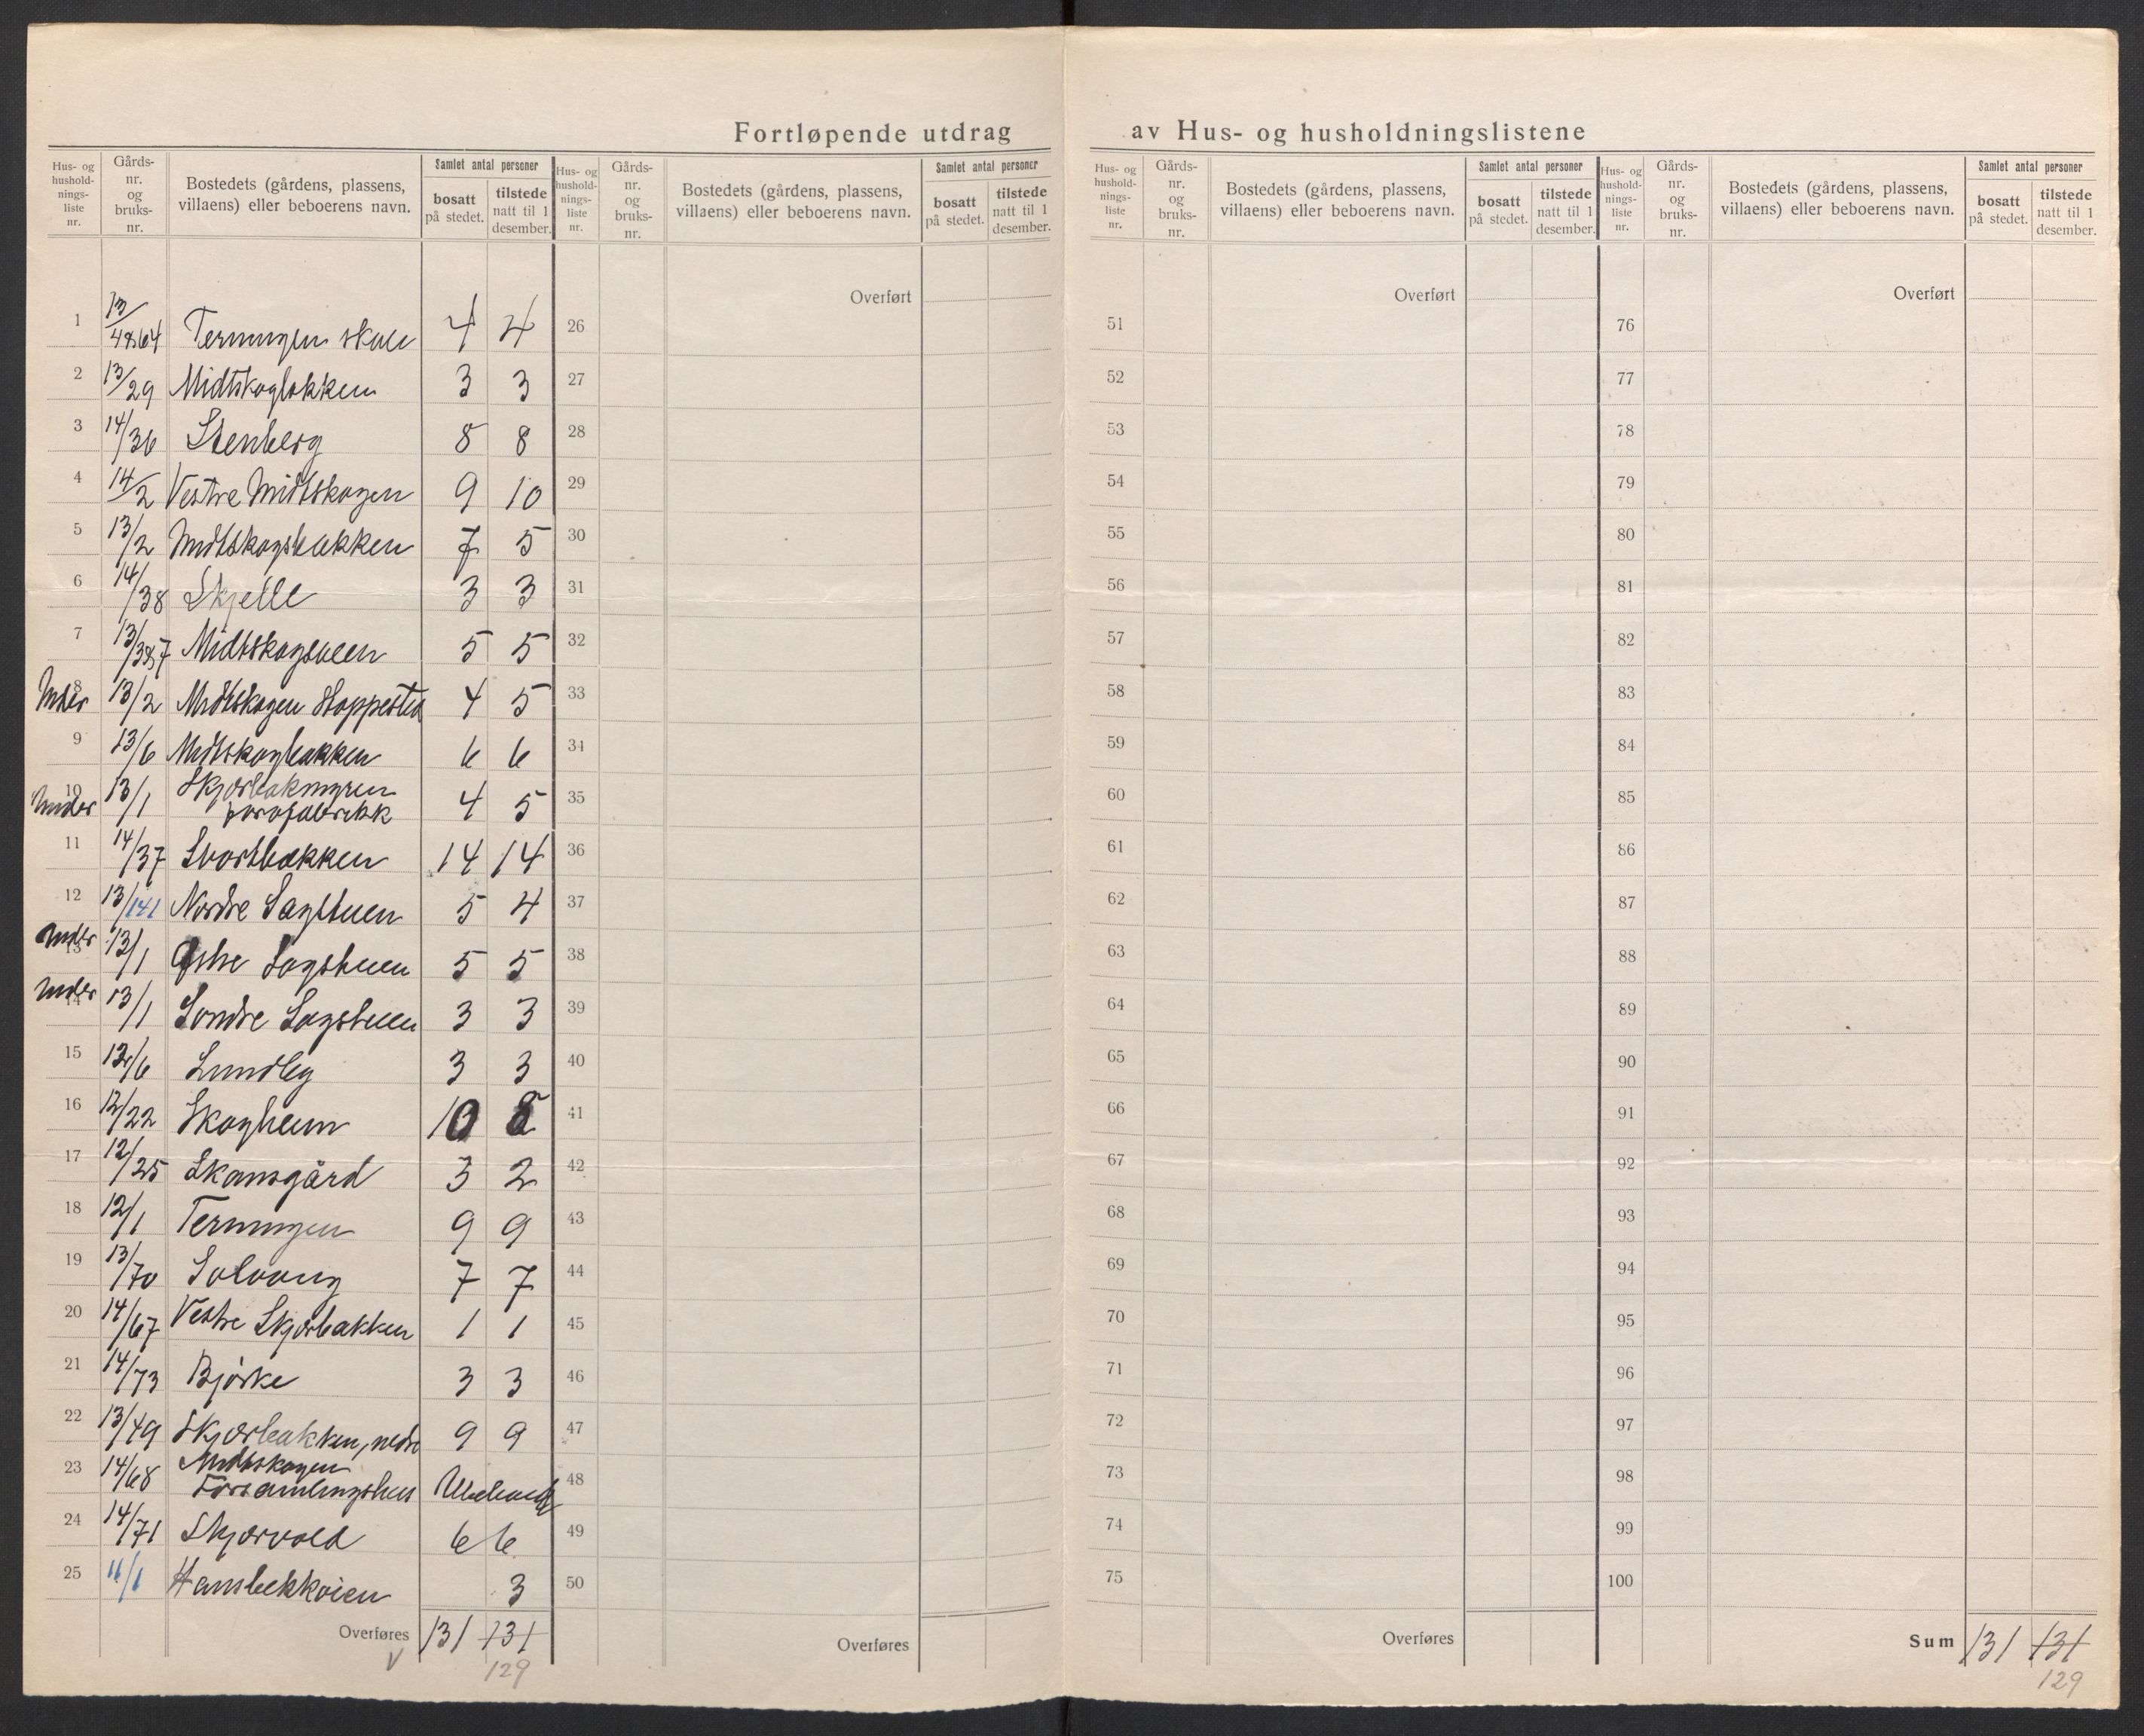 Fortløpende utdrag av Hus- og husholdningslistene
Hus- og husholdnings-liste nr.
Gårds-nr. og bruks-nr.
Bostedets (gårdens, plassens, villaens) eller beboerens navn.
Samlet antal personer
bosatt på stedet.
tilstede natt til 1 desember.
Hus- og husholdnings-liste nr.
Gårds-nr. og bruks-nr.
Bostedets (gårdens, plassens, villaens) eller beboerens navn.
Samlet antal personer
bosatt på stedet.
tilstede natt til 1 desember.
Hus- og husholdnings-liste nr.
Gårds-nr. og bruks-nr.
Bostedets (gårdens, plassens, villaens) eller beboerens navn.
Samlet antal personer
bosatt på stedet.
tilstede natt til 1 desember.
Hus- og husholdnings-liste nr.
Gårds-nr. og bruks-nr.
Bostedets (gårdens, plassens, villaens) eller beboerens navn.
Samlet antal personer
bosatt på stedet.
tilstede natt til 1 desember.
1 13/48,64 Terningen skole 4 4
2 13/29 Midtskogløkken 3 3
3 14/36 Stenberg 8 8
4 14/2 Vestre Midtskogen 9 10
5 13/2 Midtskogsbakken 7 5
6 14/38 Skjelle 3 3
7 13/ Midtskogsveen 5 5
8 Under 13/2 Midtskogen Stoppested 4 5
9 13/6 Midtskogbakken 6 6
10 Under 13/1 Skjærbakmyren
torvfabrikk 4 5
11 14/37 Svartbækken 14 14
12 13/141 Nordre Sagstuen 5 4
13 Under 13/1 Østre Sagstuen 5 5
14 Under 13/1 Søndre Sagstuen 3 3
15 12/6 Lundby 3 3
16 12/22 Skogheim 10 8
17 12/25 Skansgård 3 2
18 12/1 Terningen 9 9
19 13/70 Solvang 7 7
20 14/67 Vestre Skjærbakken 1 1
21 14/73 Bjørke 3 3
22 13/49 Skjærbakken, nedre 9 9
23 14/68 Midtskogen
Forsamlingshus Ubebodd
24 14/71 Skjærvold 6 6
25 11/1 Hansbekkoien 3
Overføres 131 131
129
Overført
26
27
28
29
30
31
32
33
34
35
36
37
38
39
40
41
42
43
44
45
46
47
48
49
50
Overføres
Overført
51
52
53
54
55
56
57
58
59
60
61
62
63
64
65
66
67
68
69
70
71
72
73
74
75
Overføres
Overført
76
77
78
79
80
81
82
83
84
85
86
87
88
89
90
91
92
93
94
95
96
97
98
99
100
Sum 131 131
129